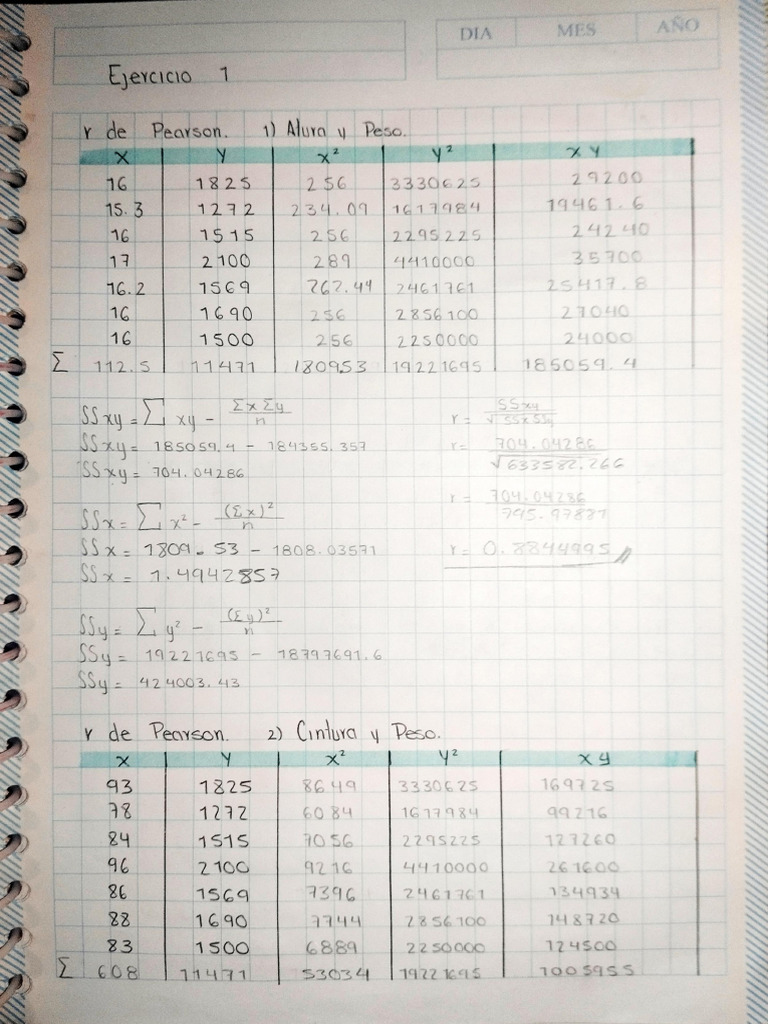 DIA MES AÑO
Ejercicio 1
r de Pearson. 1) Alura y Peso.
x y x² y² xy
16 1825 256 3330625 29200
15.3 1272 234.09 1617984 19461.6
16 1515 256 2295225 24240
17 2100 289 4410000 35700
16.2 1569 262.44 2461761 25417.8
16 1690 256 2856100 27040
16 1500 256 2250000 24000
Σ 112.5 11471 1809.53 19221695 185059.4
SSxy = Σ xy - ΣxΣy/n
SSxy = 185059.4 - 184355.357
SSxy = 704.04286
SSx = Σ x² - (Σx)²/n
SSx = 1809.53 - 1808.03571
SSx = 1.4942857
SSy = Σ y² - (Σy)²/n
SSy = 19221695 - 18797691.6
SSy = 424003.43
r = SSxy/√SSxSSy
r = 704.04286/√633582.266
r = 704.04286/795.97881
r = 0.8844995
r de Pearson. 2) Cintura y Peso.
x y x² y² xy
93 1825 8649 3330625 169725
78 1272 6084 1617984 99216
84 1515 7056 2295225 127260
96 2100 9216 4410000 201600
86 1569 7396 2461761 134934
88 1690 7744 2856100 148720
83 1500 6889 2250000 124500
Σ 608 11471 53034 19221695 1005955